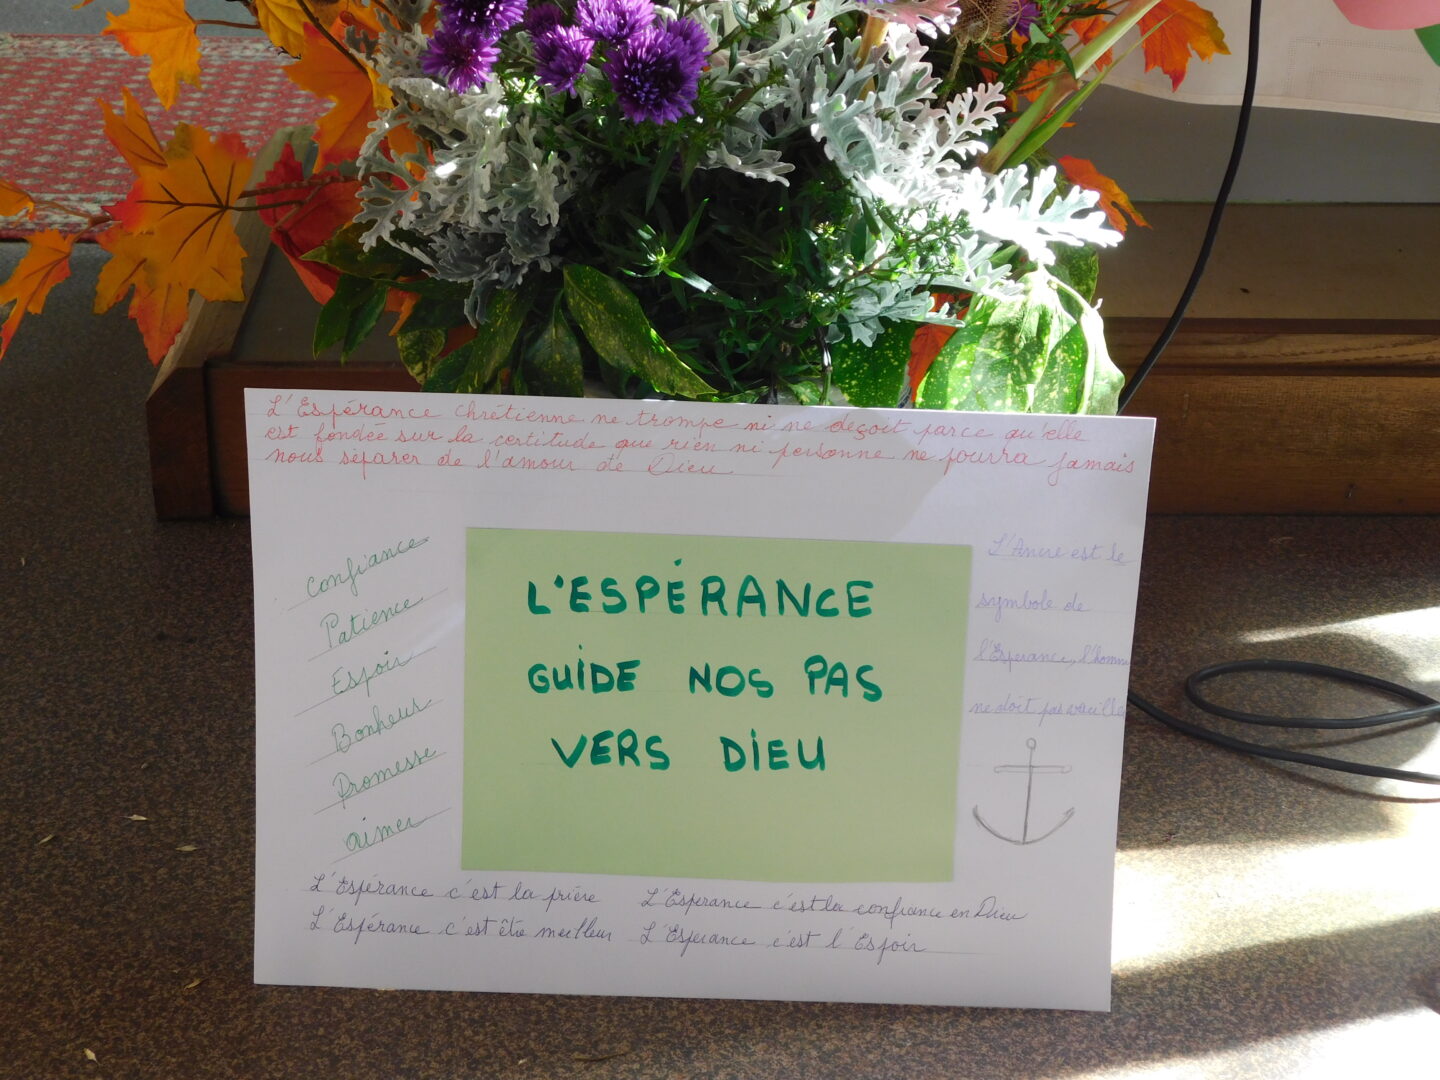 L'Espérance chrétienne ne trompe ni ne deçoit parce qu'elle
est fondée sur la certitude que rien ni personne ne pourra jamais
nous séparer de l'amour de Dieu
Confiance
Patience
Espoir
Bonheur
Promesse
aimer
L'ESPÉRANCE
GUIDE NOS PAS
VERS DIEU
L'Ancre est le
symbole de
l'Esperance, l'homme
ne doit pas vaciller
L'Espérance c'est la prière
L'Espérance c'est être meilleur
L'Esperance c'est la confiance en Dieu
L'Esperance c'est l'Espoir